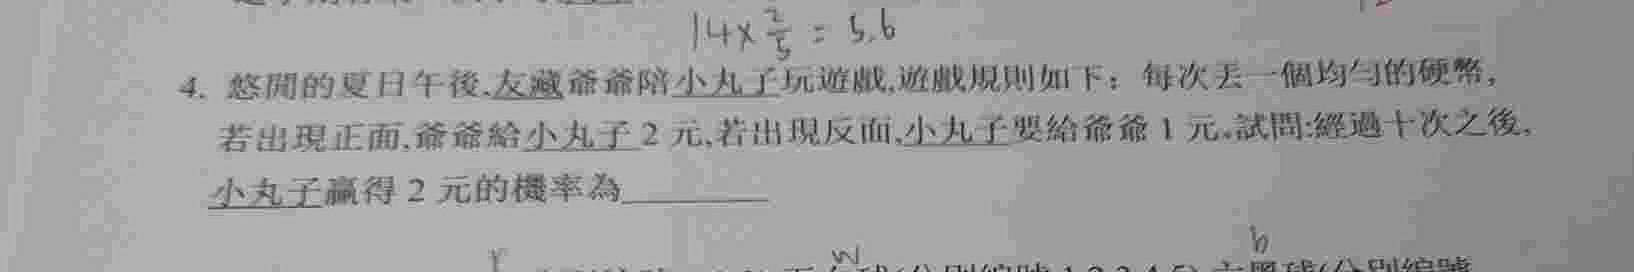 14×2/5=5.6
4. 悠閒的夏日午後,友藏爺爺陪小丸子玩遊戲,遊戲規則如下：每次丟一個均勻的硬幣,
若出現正面,爺爺給小丸子2元,若出現反面,小丸子要給爺爺1元。試問:經過十次之後,
小丸子贏得2元的機率為______
r w b